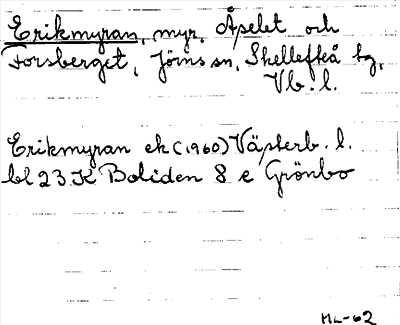 Erikmyran, myr, Åselet och
Forsberget, Jörns sn, Skellefteå tg,
Vb. l.
Erikmyran ek (1960) Västerb. l.
bl 23 K Boliden 8 e Grönbo
HL-62